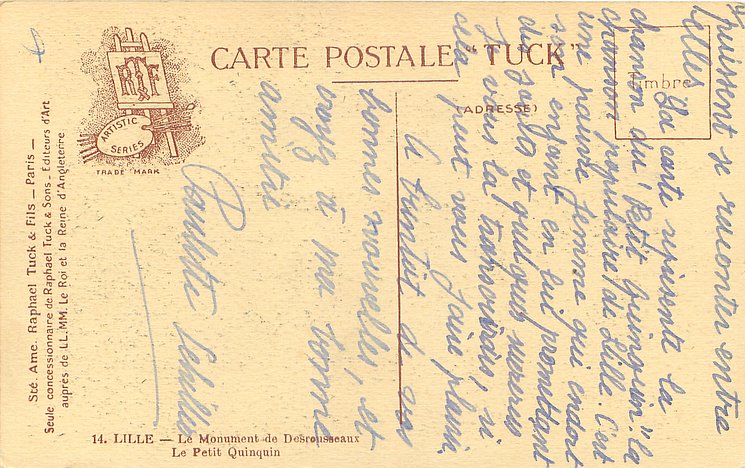 CARTE POSTALE "TUCK"
(ADRESSE)
Timbre
RTF
ARTISTIC
SERIES
TRADE MARK
Sté. Ame. Raphael Tuck & Fils — Paris —
Seule concessionnaire de Raphael Tuck & Sons - Editeurs d'Art
auprès de LL.MM. Le Roi et la Reine d'Angleterre
14. LILLE — Le Monument de Desrousseaux
Le Petit Quinquin
puissent se raconter entre
elles. La carte représente la
chanson du "Petit Quinquin" la
chanson populaire de Lille. C'est
une pauvre femme qui endort
son enfant en lui promettant
du et quelques
Je vous la, si
cela peut vous faire plaisir.
A bientôt de vos
bonnes nouvelles, et
croyez à ma bonne
amitié
Paulette